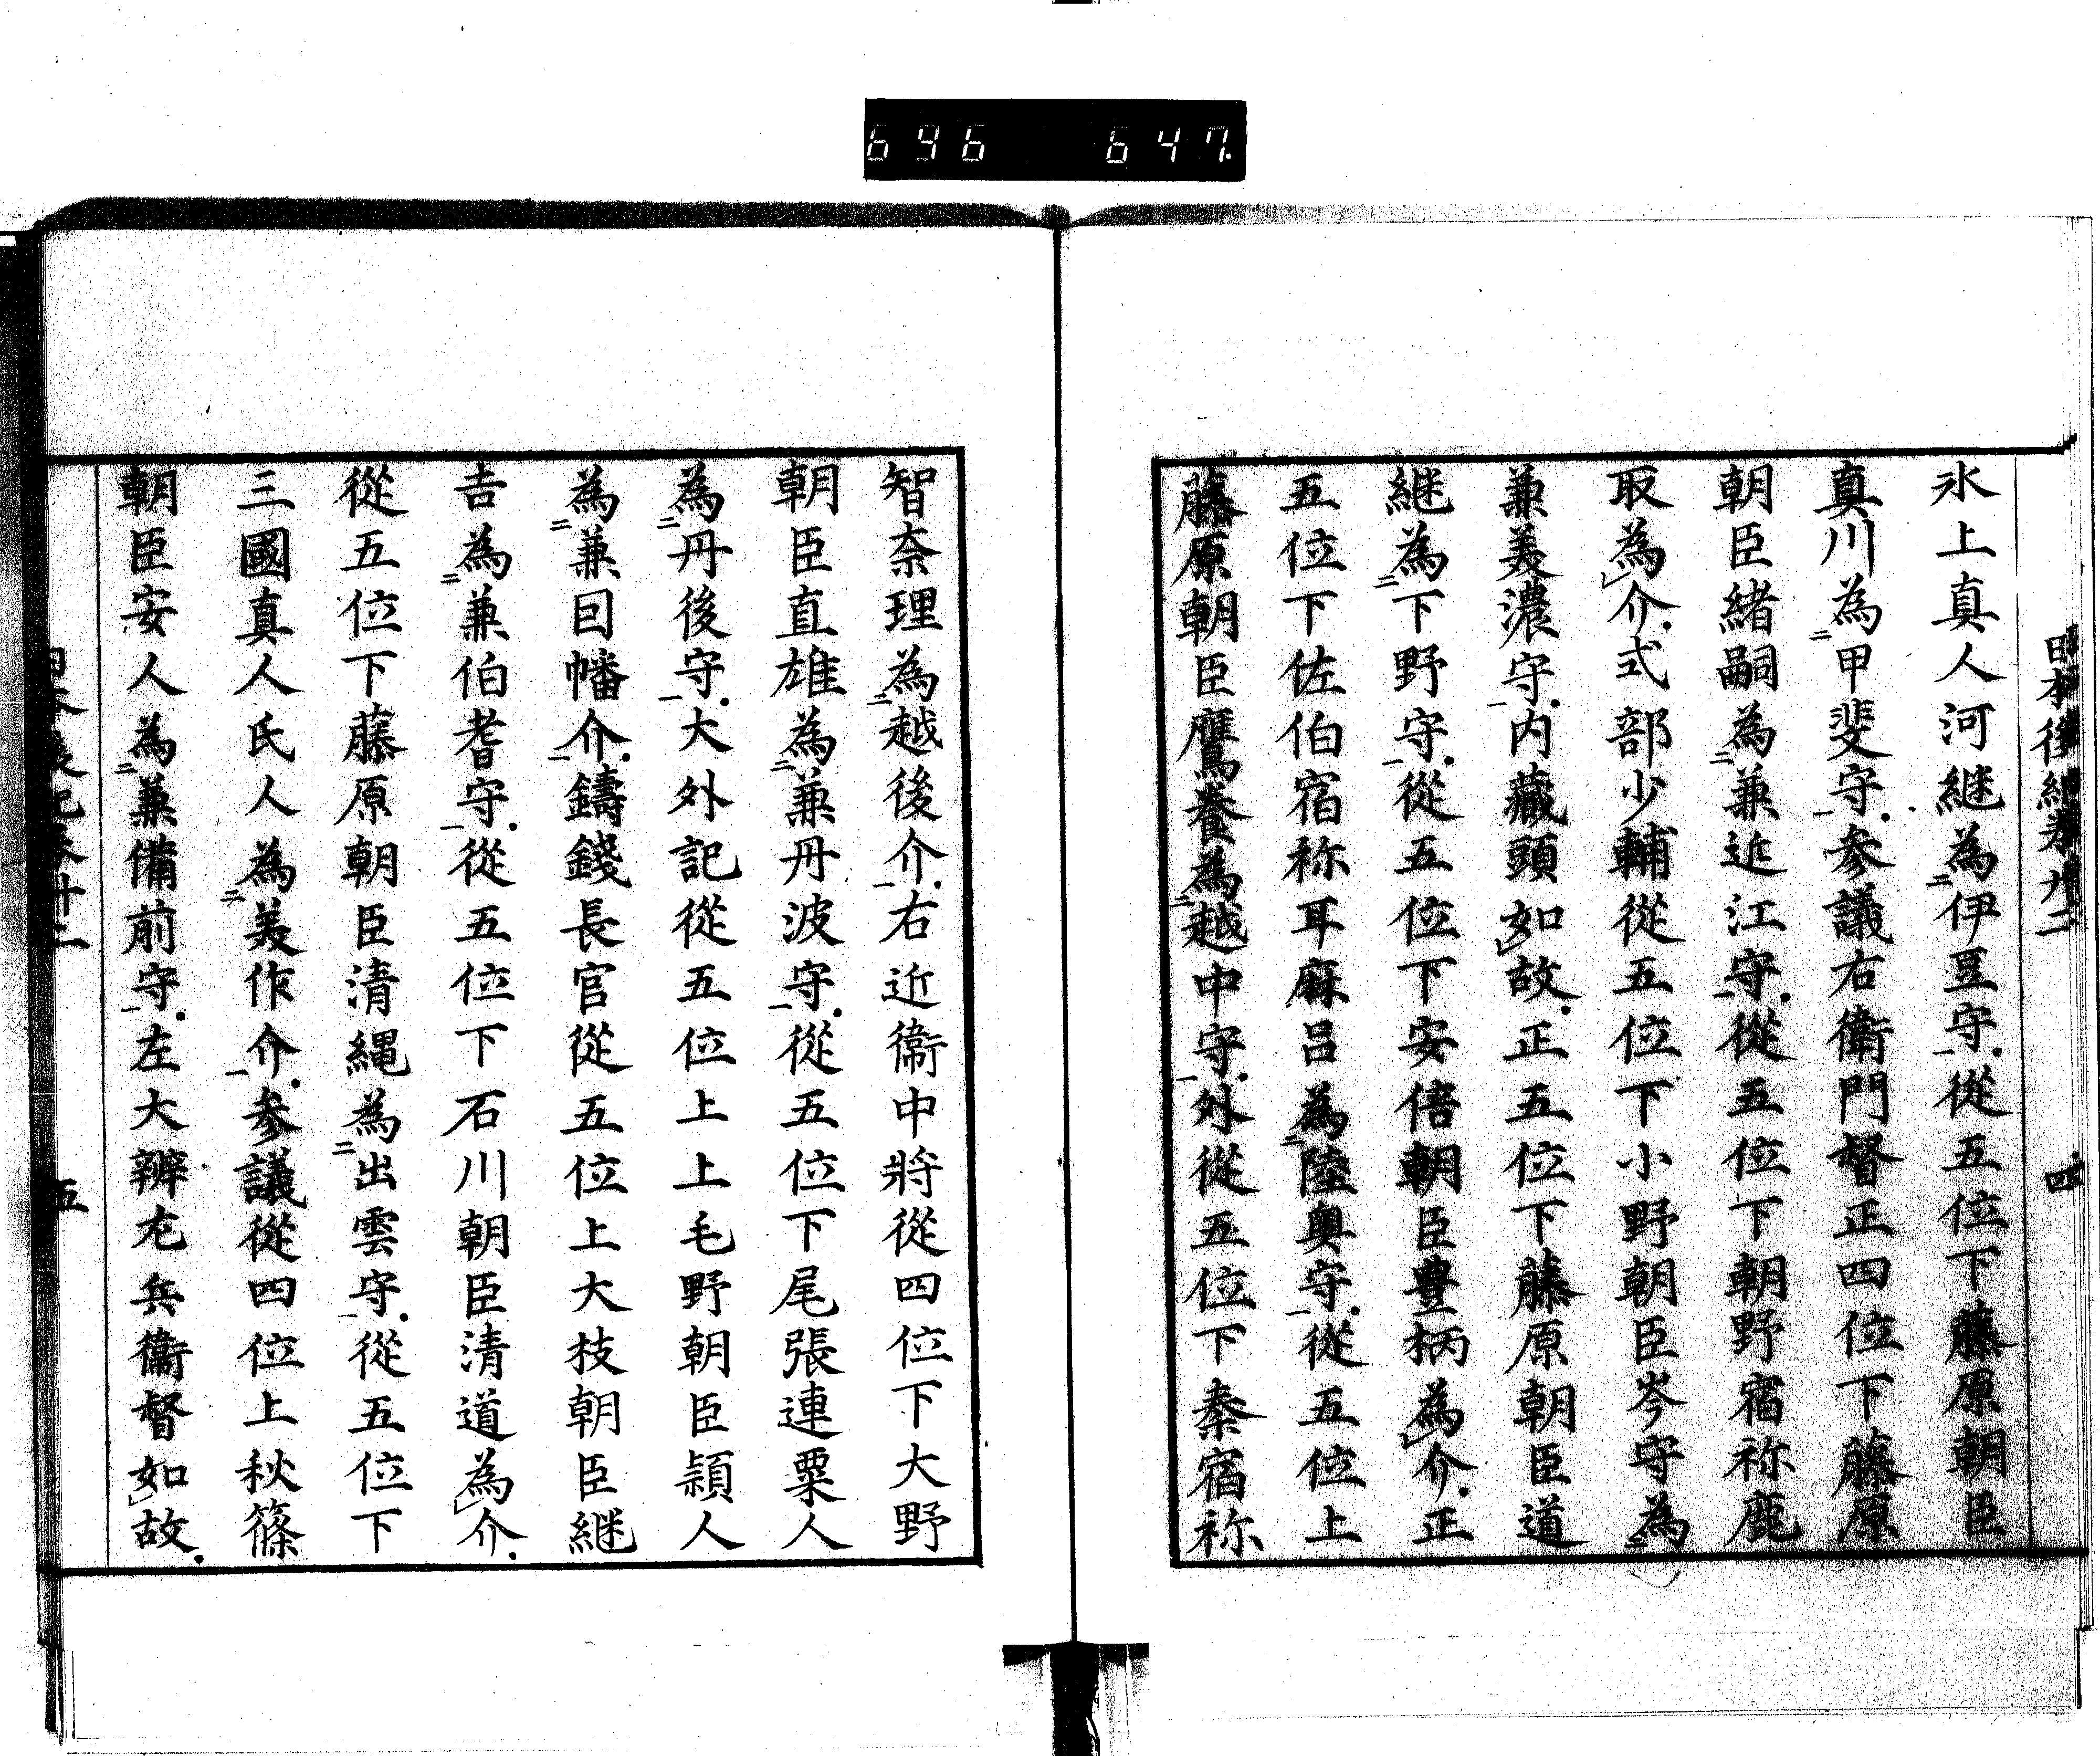 696 647.
日本後紀卷廿二 四
氷上真人河継為伊豆守從五位下藤原朝臣
真川為甲斐守參議右衛門督正四位下藤原
朝臣緒嗣為兼近江守從五位下朝野宿祢鹿
取為介式部少輔從五位下小野朝臣岑守為
兼美濃守内藏頭如故正五位下藤原朝臣道
継為下野守從五位下安倍朝臣豊柄為介正
五位下佐伯宿祢耳麻呂為陸奥守從五位上
藤原朝臣鷹養為越中守外從五位下秦宿祢
智奈理為越後介右近衞中將從四位下大野
朝臣直雄為兼丹波守從五位下尾張連粟人
為丹後守大外記從五位上上毛野朝臣頴人
為兼因幡介鑄錢長官從五位上大枝朝臣継
吉為兼伯耆守從五位下石川朝臣清道為介
從五位下藤原朝臣清縄為出雲守從五位下
三國真人氏人為美作介參議從四位上秋篠
朝臣安人為兼備前守左大辨左兵衞督如故
五